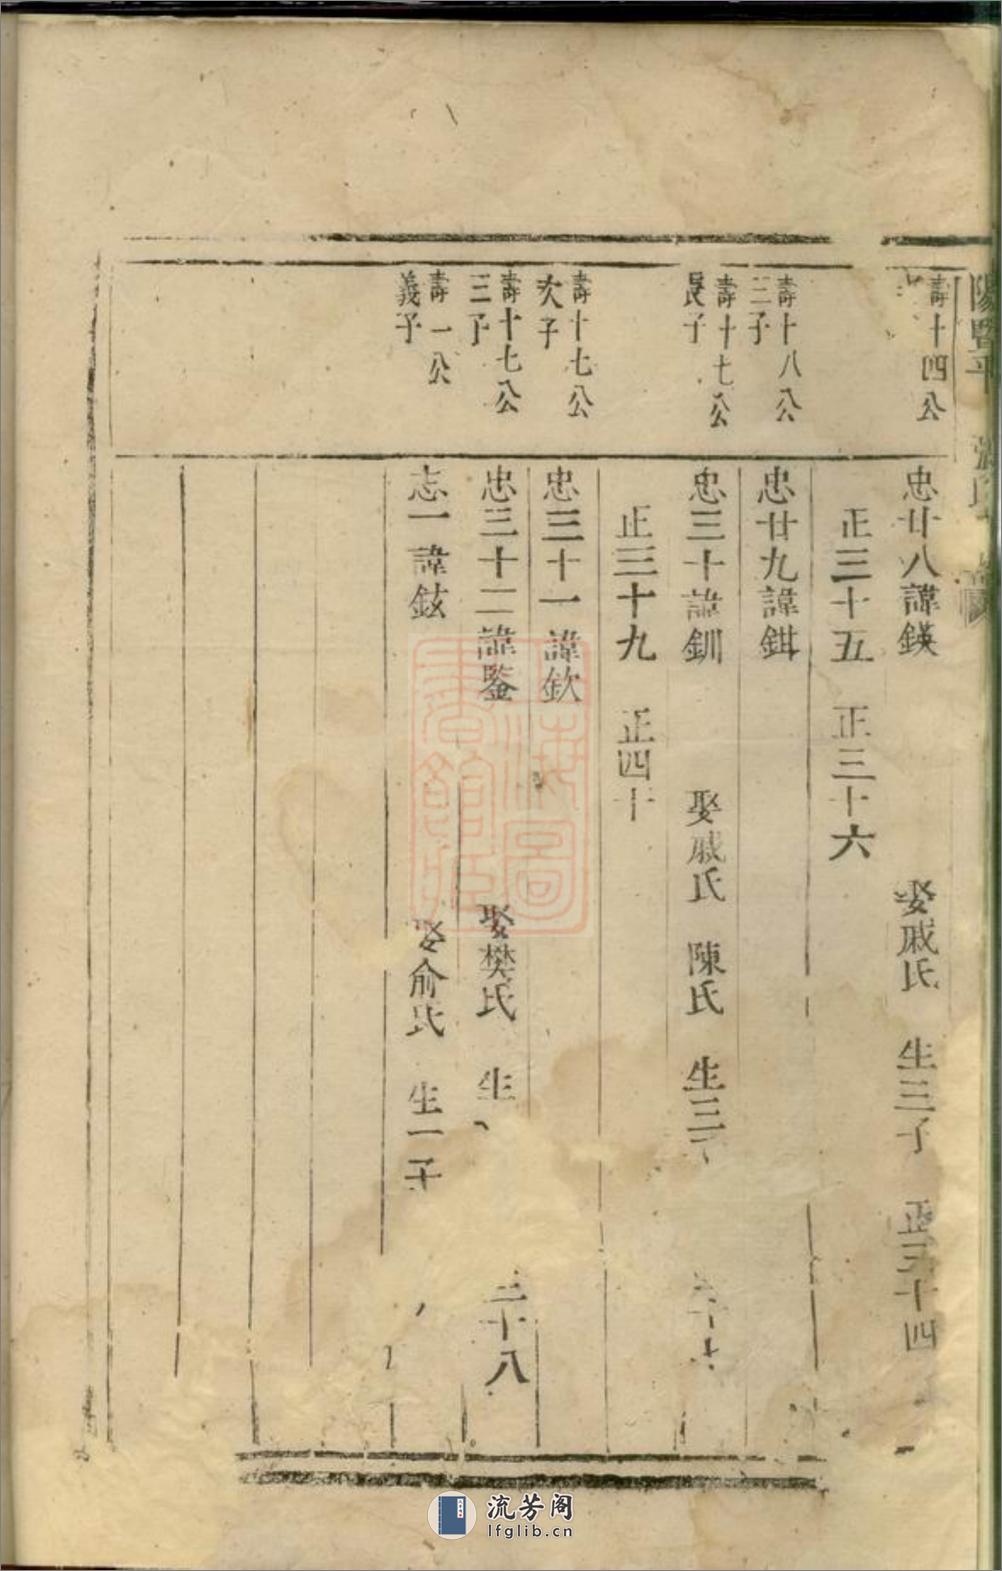 壽十四公
忠廿八諱鍈 娶戚氏 生三子 正三十四
正三十五 正三十六
壽十八公
三子
忠廿九諱鉗
壽十七公
長子
忠三十諱釧 娶戚氏 陳氏 生三
正三十九 正四十
壽十七公
次子
忠三十一諱欽
壽十七公
三子
忠三十二諱鑒 娶樊氏 生 三十八
壽一公
義子
志一諱鉉 娶俞氏 生一子
流芳阁
lfglib.cn